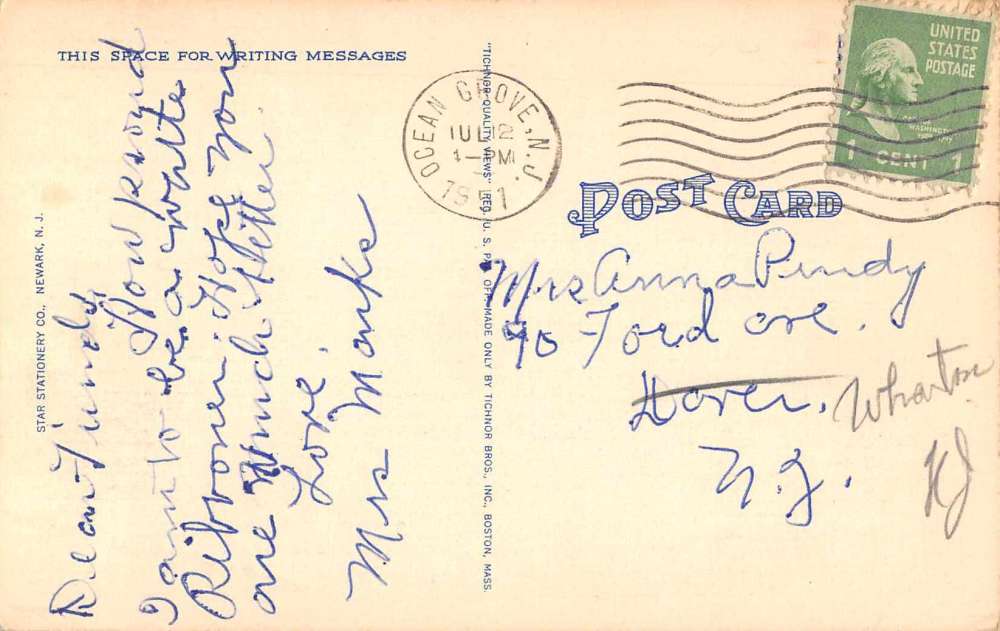 THIS SPACE FOR WRITING MESSAGES
Dear Friends,
How proud
I am to be a white
Ribboner. Hope you
are much better.
Love.
Mrs Monks
STAR STATIONERY CO., NEWARK, N. J.
"TICHNOR QUALITY VIEWS" REG. U. S. PAT. OFF. MADE ONLY BY TICHNOR BROS., INC., BOSTON, MASS.
OCEAN GROVE, N.J.
JUL 12
1 - PM
1951
UNITED
STATES
POSTAGE
WASHINGTON
1 CENT 1
POST CARD
Mrs Anna Pundy
90 Ford ave.
Dover, Wharton
N.J. NJ